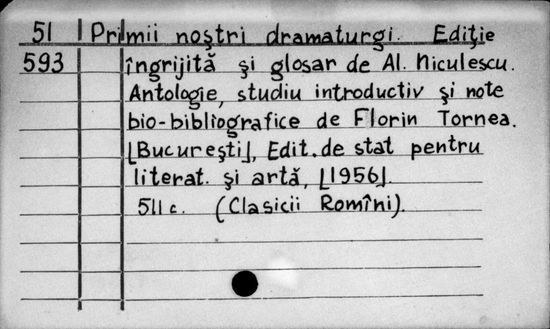 51 Primii noştri dramaturgi. Ediţie
593 îngrijită şi glosar de Al. Niculescu.
Antologie, studiu introductiv şi note
bio-bibliografice de Florin Tornea.
[Bucureşti], Edit. de stat pentru
literat. şi artă, [1956].
511 c. (Clasicii Romîni).